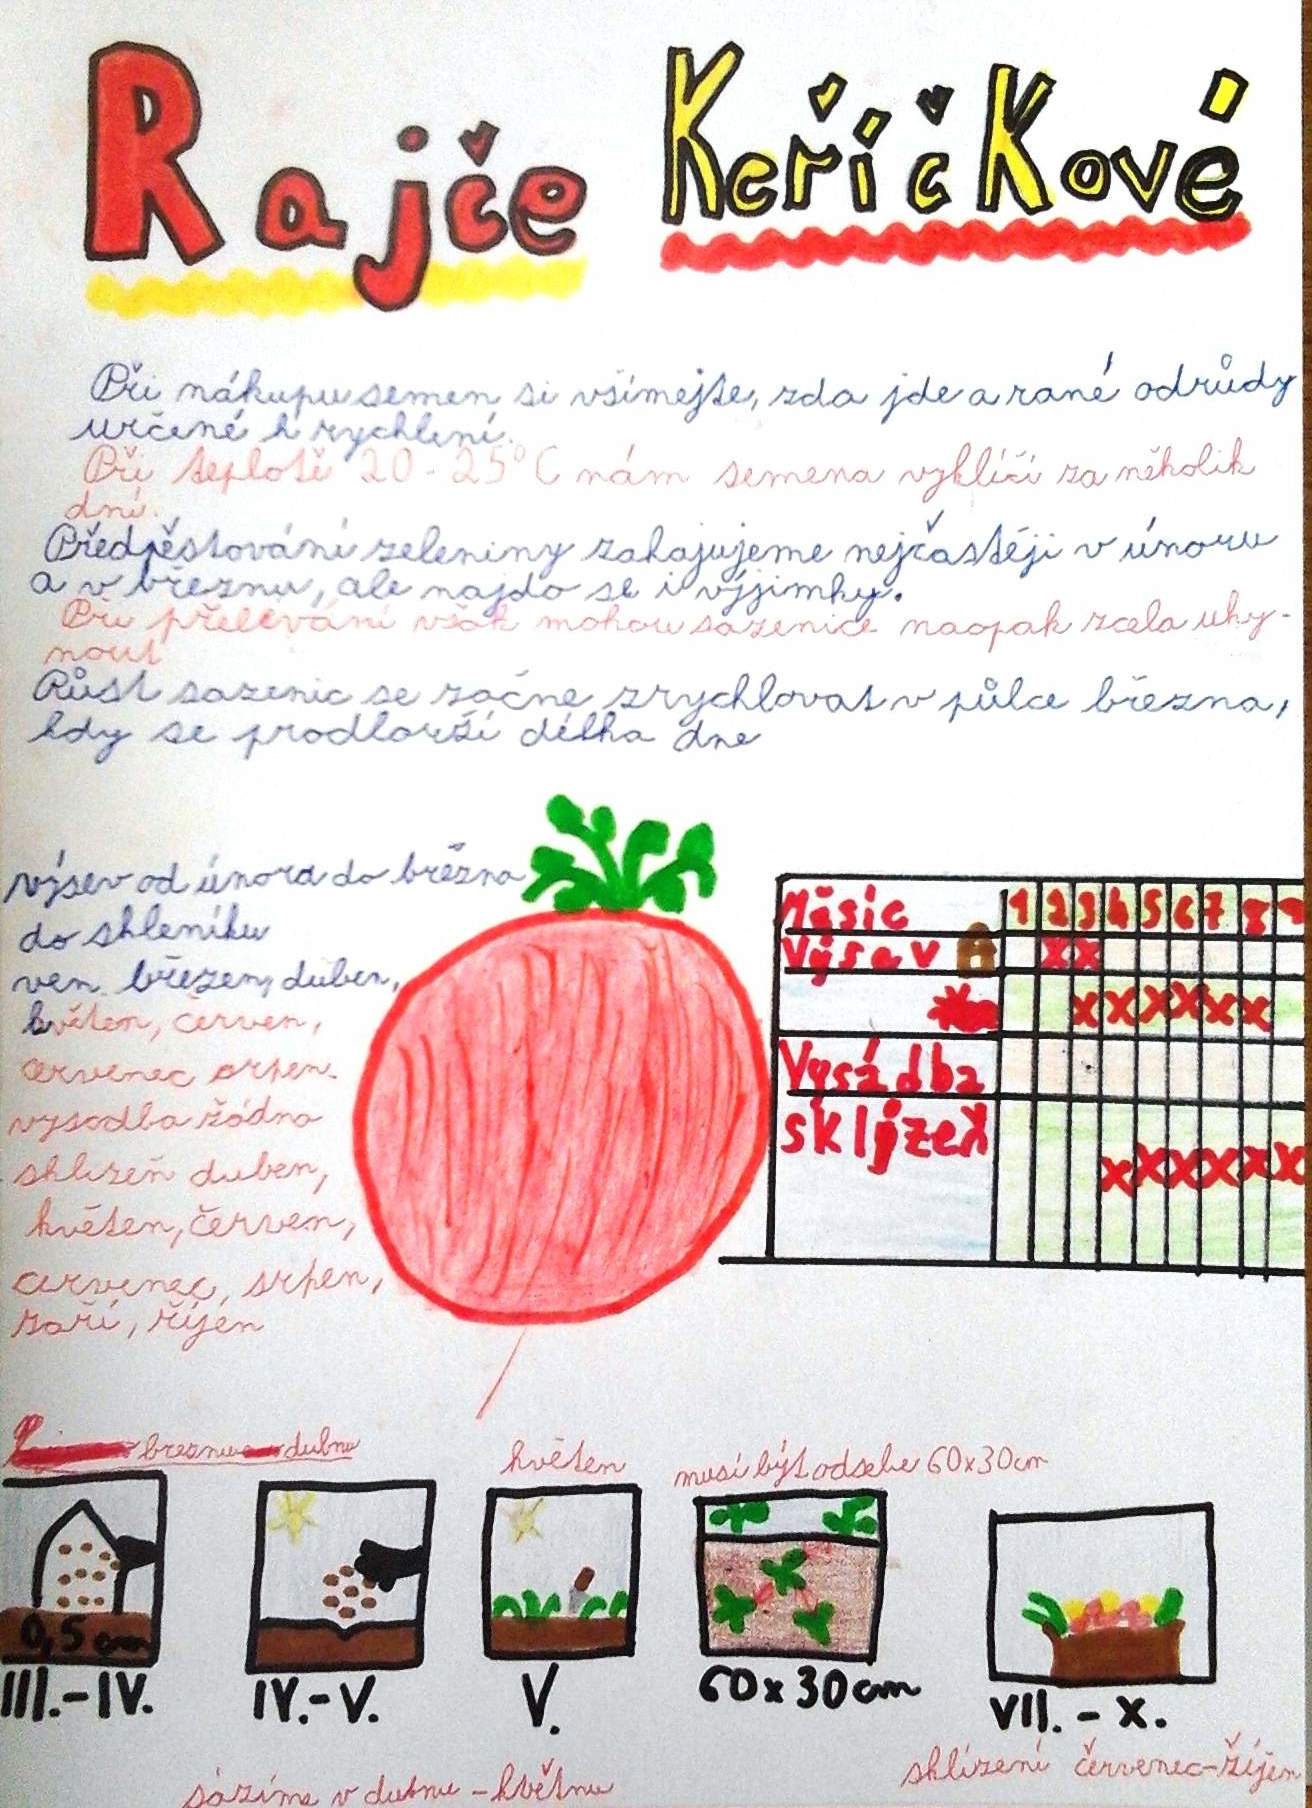 Rajče Keříčkové
Při nákupu semen si všímejte, zda jde a rané odrůdy
určené k rychlení.
Při teplotě 20-25°C nám semena vyklíčí za několik
dní.
Předpěstování zeleniny zahajujeme nejčastěji v únoru
a v březnu, ale najdo se i výjimky.
Při přelévání však mohou sazenice naopak zcela uhy-
nout
Růst sazenic se začne zrychlovat v půlce března,
kdy se prodlouží délka dne
výsev od února do března
do skleníku
ven březen, duben,
květen, červen,
červenec srpen.
vysadba žádna
sklizeň duben,
květen, červen,
červenec, srpen,
zaří, říjen
Měsíc 1 2 3 4 5 6 7 8 9
Výsev x x
x x x x x x
Vysádba
sklizeň x x x x x x
březnu dubnu
květen
musí být odsebe 60x30cm
0,5 cm
III.-IV.
IV.-V.
V.
60x30cm
VII.-X.
sázíme v dubnu - květnu
sklízení červenec-říjen